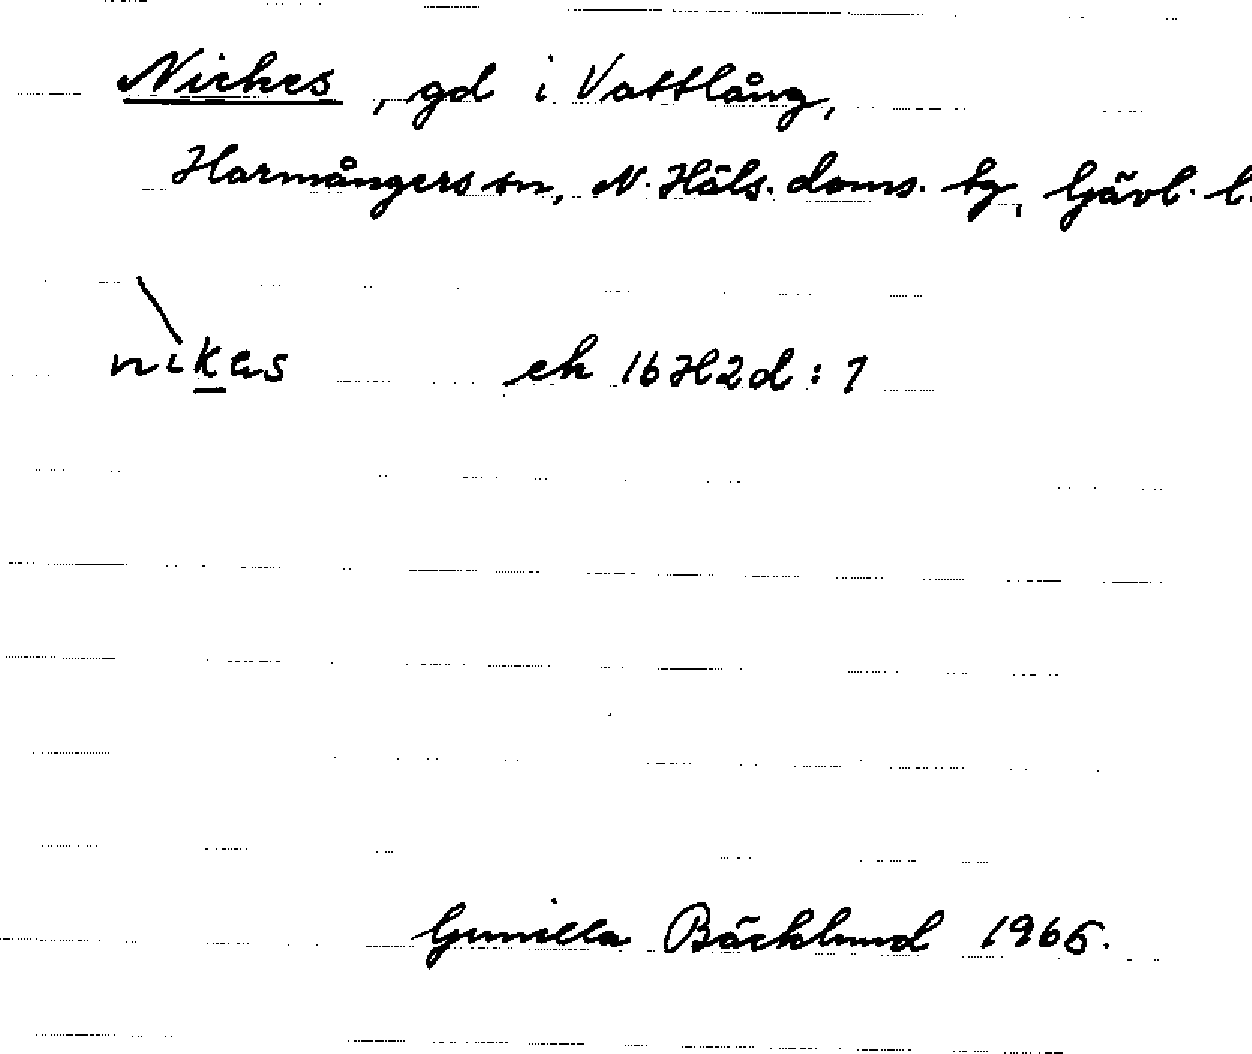 Nickes, gd i Vattlång,
Harmångers sn, N. Häls. doms. tg, Gävl. l.
nikas ek 16H2d:7
Gunilla Bäcklund 1966.